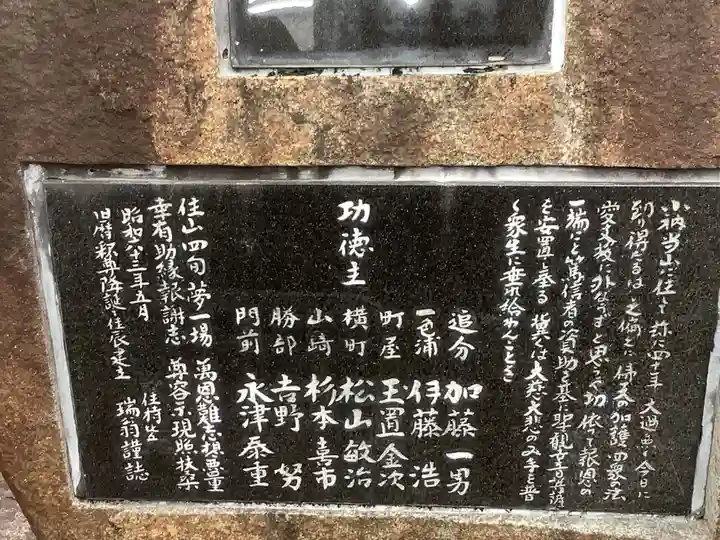 小衲当山に住して茲に四十年 大過無く今日に
到り得たるは 之偏とに 佛天の加護 四衆の法
愛を我に外ならずと思う 切 依て報恩の
一端にと 篤信者の資助を基に 聖観世音菩薩
を安置し奉る 冀くは大慈大悲のみ手を普
く衆生に垂れ給わんことを
功徳主
追分 加藤一男
一色浦 伊藤浩
町屋 玉置金次
横町 松山敏治
山崎 杉本喜市
勝部 吉野努
門前 永津泰重
住山四旬夢一場 萬恩難忘想無量
幸有助縁報謝志 尊容示現照扶桑
昭和六十三年五月
旧暦釈尊降誕佳辰 建立
住持 瑞翁謹誌